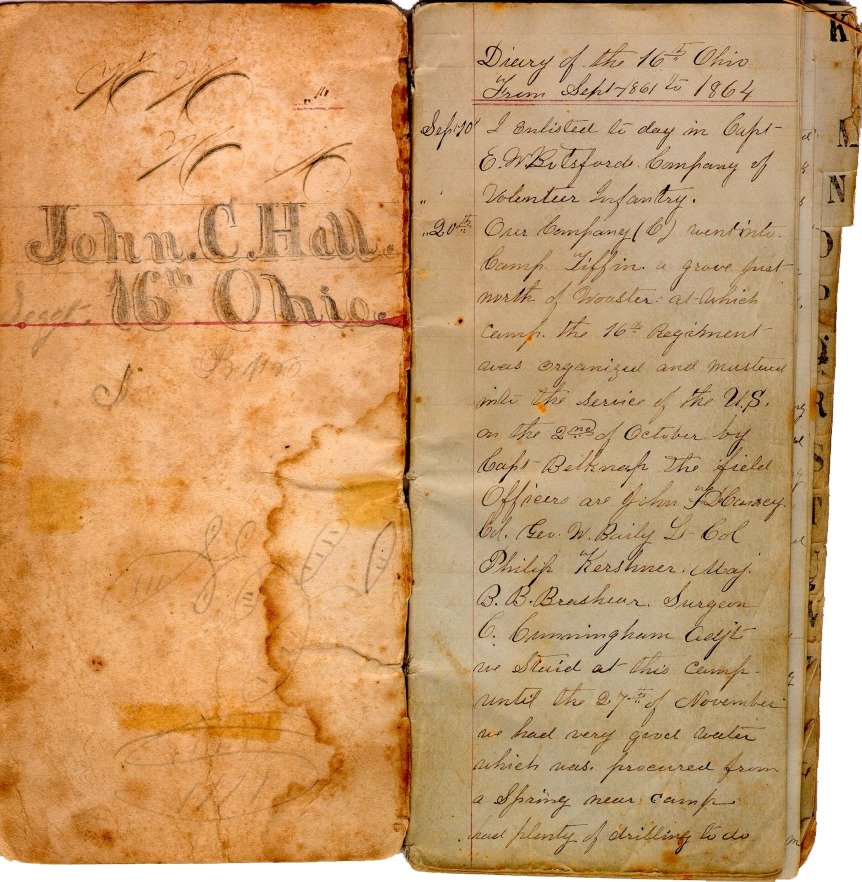 John. C. Hall.
16th Ohio.
Diary of the 16th Ohio
From Sept 1861 to 1864
Sept 10th I enlisted to day in Capt
E. W. Botsfords Company of
" Volenteer Infantry.
" 20th. Our Company (C) went into
Camp Tiffin. a grove just
north of Wooster. at which
camp. the 16th Regiment
was organized and mustered
into the service of the U.S.
on the 2nd of October by
Capt Belknap the field
Officers are John F. DeCourcy.
Col. Geo. W. Baily Lt Col
Philip Kershner. Maj.
B. B. Brashear. Surgeon
C. Cunningham Adjt
we staid at this camp
until the 27th of November
we had very good water
which was. procured from
a Spring near camp
had plenty of drilling to do
K
M
N
O
P
R
S
T